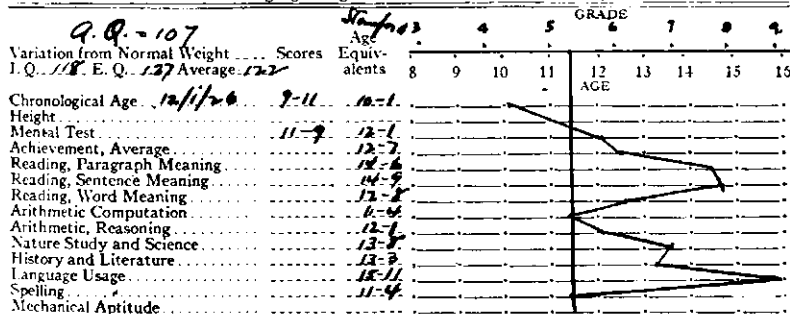 GRADE
A.Q. = 107 Stanford 3 4 5 6 7 8 9
Age
Variation from Normal Weight .... Scores Equiv-
I. Q. 118 E. Q. 127 Average 122 alents 8 9 10 11 12 13 14 15 16
AGE
Chronological Age 12/1/26 9-11 10-1
Height
Mental Test 11-9 12-1
Achievement, Average 12-7
Reading, Paragraph Meaning 14-6
Reading, Sentence Meaning 14-9
Reading, Word Meaning 12-8
Arithmetic Computation 11-4
Arithmetic, Reasoning 12-1
Nature Study and Science 13-8
History and Literature 13-3
Language Usage 15-11
Spelling 11-4
Mechanical Aptitude